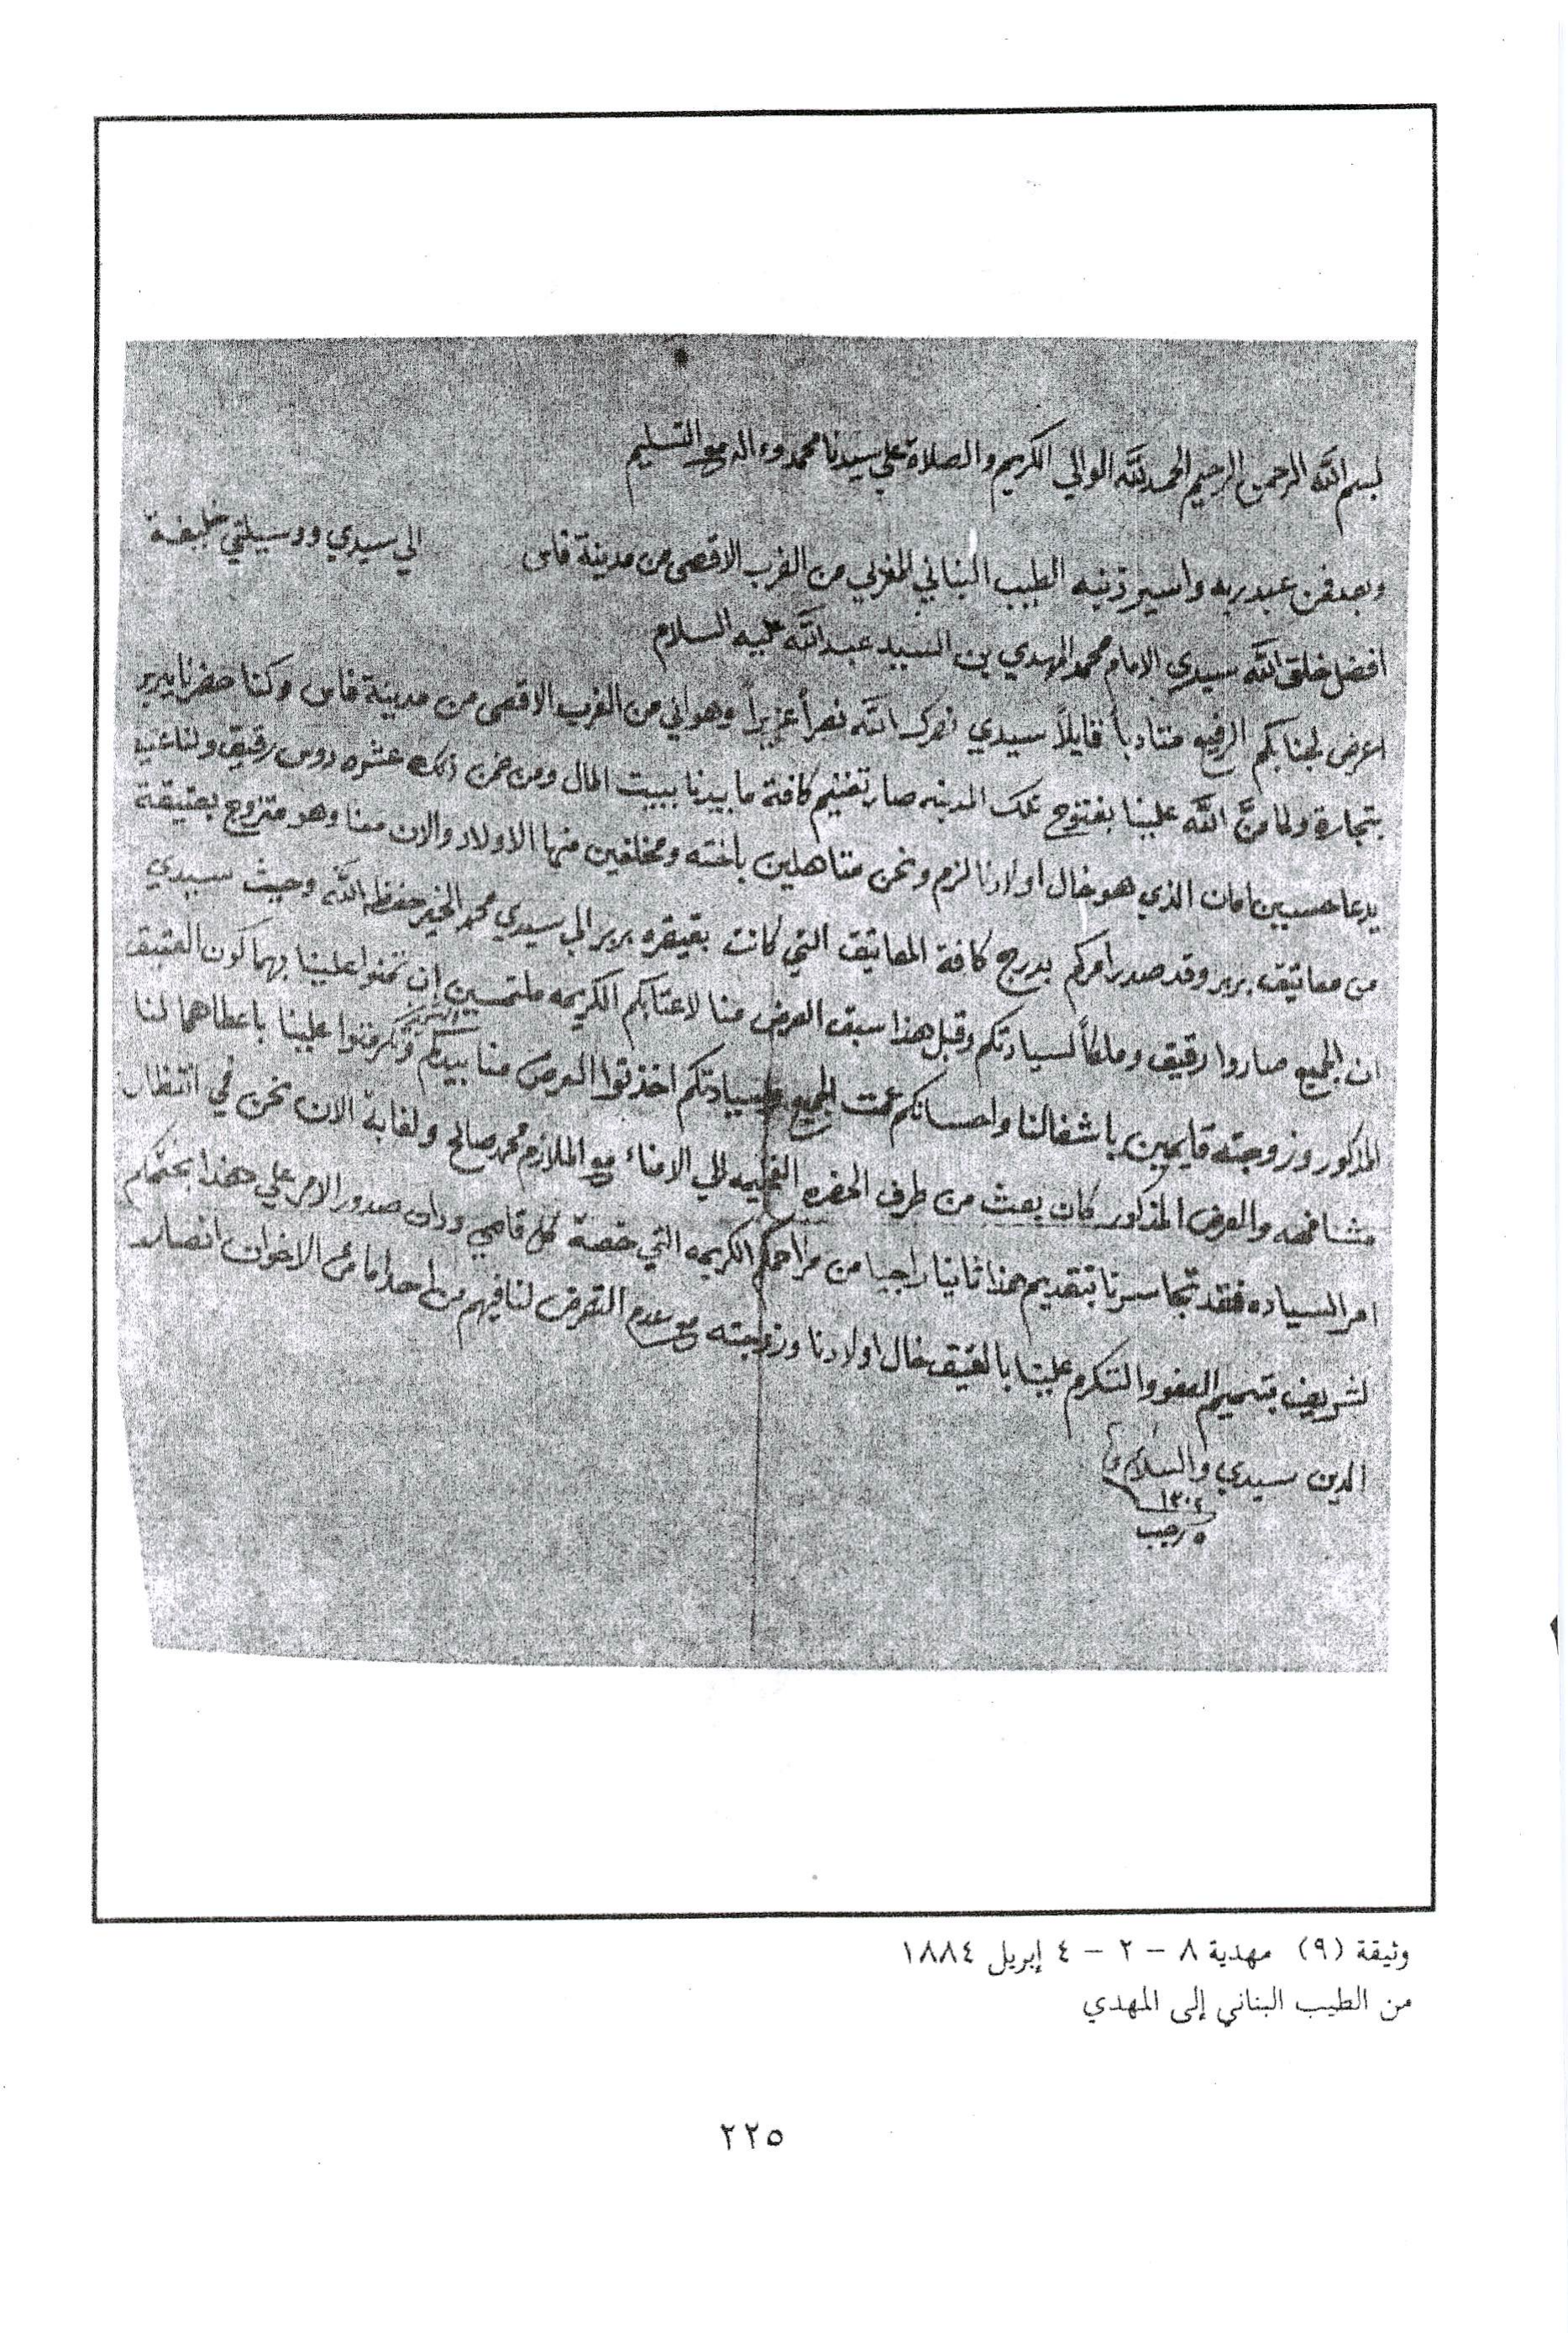 بسم الله الرحمن الرحيم الحمد لله الوالي الكريم والصلاة علي سيدنا محمد وءاله مع التسليم
وبعد فمن عبد ربه واسير ذنبه الطيب البناني المغربي من الغرب الاقصى من مدينة فاس الي سيدي ووسيلتي خليفة
افضل خلق الله سيدي الامام محمد المهدي بن السيد عبد الله عليه السلام
اعرض لجنابكم الرفيع متادباً قايلاً سيدي نصرك الله نصراً عزيزاً وهو اني من الغرب الاقصى من مدينة فاس وكنا حضرنا بربر
بتجارة ولما منَّ الله علينا بفتوح تلك المدينه صار تغنيم كافة ما بيدنا ببيت المال ومن ضمن ذلك عشره روس رقيق ولنا عتيق
يدعا حسين امان الذي هو خال اولادنا لزم ونحن متاهلين باخته ومخلفين منها الاولاد والان معنا وهو متزوج بعتيقة
من معاتيق بربر وقد صدر امركم بدرج كافة المعاتيق التي كانت بقيقره بربر الي سيدي محمد الخير حفظه الله وحيث سيدي
ان الجميع صاروا رقيق وملكاً لسيادتكم وقبل هذا سبق العرض منا لاعتابكم الكريمه ملتمسين ان تمنوا علينا بهما كون العتيق
المذكور وزوجته قايمين باشغالنا واحسانكم عمت الجميع وسيادتكم اخذتوا العرض منا بيدكم وتكرمتوا علينا باعطاهما لنا
مشافهه والعرض المذكور كان بعث من طرف الحضره الفخيمه الي الامناء مع الملازم محمد صالح ولغاية الان نحن في انتظار
امر السياده فقد تجاسرنا بتقديم هذا ثانيا راجيا من مراحمكم الكريمه التي خصة كل قاصي ودان صدور الامر علي هذا بختمكم
لشريف بتسميم العفو والتكرم علينا بالعتيق خال اولادنا وزوجته مع عدم التعرض لنا فيهم من احد اما من الاخوان انصار
الدين سيدي والسلام
١٣٠٢
٥ رجب
وثيقة (٩) مهدية ٨ – ٢ – ٤ إبريل ١٨٨٤
من الطيب البناني إلى المهدي
٢٢٥